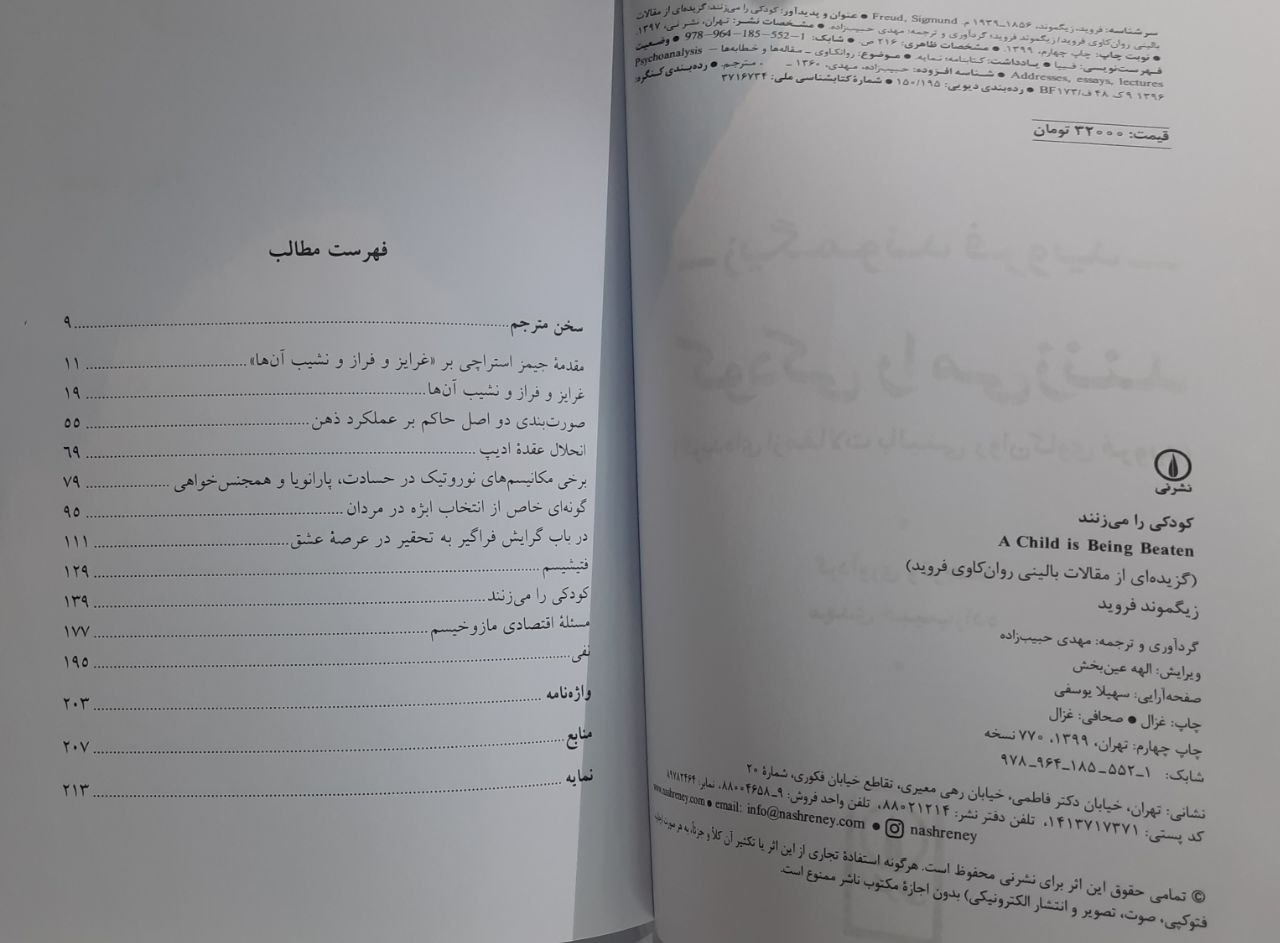 سرشناسه: فروید، زیگموند، ۱۸۵۶_۱۹۳۹ م. Freud, Sigmund ● عنوان و پدیدآور: کودکی را می‌زنند: گزیده‌ای از مقالات
بالینی روان‌کاوی فروید/ زیگموند فروید؛ گردآوری و ترجمه: مهدی حبیب‌زاده. ● مشخصات نشر: تهران، نشر نی، ۱۳۹۷.
● نوبت چاپ: چاپ چهارم، ۱۳۹۹. ● مشخصات ظاهری: ۲۱۶ ص. ● شابک: 978-964-185-552-1 ● وضعیت
فهرست‌نویسی: فیپا ● یادداشت: کتابنامه؛ نمایه. ● موضوع: روانکاوی _ مقاله‌ها و خطابه‌ها — Psychoanalysis
Addresses, essays, lectures ● شناسه افزوده: حبیب‌زاده، مهدی، ۱۳۶۰ _ ، مترجم. ● رده‌بندی کنگره:
۱۳۹۶ ۹ک ۴۸ ف/BF۱۷۳ ● رده‌بندی دیویی: ۱۵۰/۱۹۵ ● شمارهٔ کتابشناسی ملی: ۳۷۱۶۷۳۴
قیمت: ۳۲۰۰۰ تومان
نشرنی
کودکی را می‌زنند
A Child is Being Beaten
(گزیده‌ای از مقالات بالینی روان‌کاوی فروید)
زیگموند فروید
گردآوری و ترجمه: مهدی حبیب‌زاده
ویرایش: الهه عین‌بخش
صفحه‌آرایی: سهیلا یوسفی
چاپ: غزال ● صحافی: غزال
چاپ چهارم: تهران، ۱۳۹۹، ۷۷۰ نسخه
شابک: ۱_۵۵۲_۱۸۵_۹۶۴_۹۷۸
نشانی: تهران، خیابان دکتر فاطمی، خیابان رهی معیری، تقاطع خیابان فکوری، شمارهٔ ۲۰
کد پستی: ۱۴۱۳۷۱۷۳۷۱، تلفن دفتر نشر: ۸۸۰۲۱۲۱۴، تلفن واحد فروش: ۹_۸۸۰۰۴۶۵۸، نمابر: ۸۹۷۸۲۴۶۴
www.nashreney.com ● email: info@nashreney.com ● nashreney
© تمامی حقوق این اثر برای نشرنی محفوظ است. هرگونه استفادهٔ تجاری از این اثر یا تکثیر آن کلاً و جزئاً، به هر صورت
فتوکپی، صوت، تصویر و انتشار الکترونیکی) بدون اجازهٔ مکتوب ناشر ممنوع است.
فهرست مطالب
سخن مترجم ۹
مقدمهٔ جیمز استراچی بر «غرایز و فراز و نشیب آن‌ها» ۱۱
غرایز و فراز و نشیب آن‌ها ۱۹
صورت‌بندی دو اصل حاکم بر عملکرد ذهن ۵۵
انحلال عقدهٔ ادیپ ۶۹
برخی مکانیسم‌های نوروتیک در حسادت، پارانویا و همجنس‌خواهی ۷۹
گونه‌ای خاص از انتخاب ابژه در مردان ۹۵
در باب گرایش فراگیر به تحقیر در عرصهٔ عشق ۱۱۱
فتیشیسم ۱۲۹
کودکی را می‌زنند ۱۳۹
مسئلهٔ اقتصادی مازوخیسم ۱۷۷
نفی ۱۹۵
واژه‌نامه ۲۰۳
منابع ۲۰۷
نمایه ۲۱۳